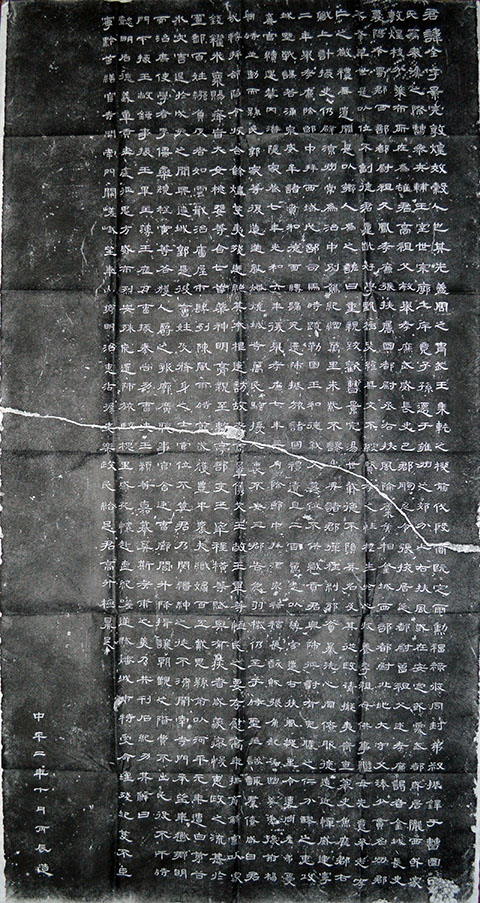 君諱全字景完敦煌效穀人也其先蓋周之胄武王秉乾之機翦伐殷商既定爾勳福祿攸同封弟叔振鐸于曹國因
氏焉秦漢之際曹參夾輔王室世宗廓土斥竟子孫遷于雍州之郊分止右扶風或在安定或處武都或居隴西或家
敦煌枝分葉布所在為雄君高祖父敏舉孝廉武威長史巴郡朐忍令張掖居延都尉曾祖父述孝廉謁者金城長史
夏陽令蜀郡西部都尉祖父鳳孝廉張掖屬國都尉丞右扶風隃麋侯相金城西部都尉北地大守父琫少貫名州郡
不幸早世是以位不副德君童齔好學甄極毖緯無文不綜賢孝之性根生於心收養季祖母供事繼母先意承志存
亡之敬禮無遺闕是以鄉人為之諺曰重親致歡曹景完易世載德不隕其名及其從政清擬夷齊直慕史魚歷郡右
職上計掾史仍辟涼州常為治中別駕紀綱萬里朱紫不謬出典諸郡彈枉糾邪貪暴洗心同僚服德遠近憚威建寧
二年舉孝廉除郎中拜西域戊部司馬時疏勒國王和德弒父篡位不供職貢君興師征討有兗膿之仁分醪之惠攻
城野戰謀若涌泉威牟諸賁和德面縛歸死還師振旅諸國禮遺且二百萬悉以薄官遷右扶風槐里令遭同產弟憂
棄官續遇禁罔潛隱家巷七年光和六年復舉孝廉七年三月除郎中拜酒泉祿福長訞賊張角起兵幽冀兗豫荊楊
同時並動而縣民郭家等復造逆亂燔燒城寺萬民騷擾人裹不安三郡告急羽檄仍至于時聖主諮諏群僚咸曰君
哉轉拜郃陽令收合餘燼芟夷殘迸絕其本根遂訪故老商量儁艾王敞王畢等恤民之要存慰高年撫育鰥寡以家
錢糴米粟賜癃盲大女桃斐等合七首藥神明膏親至離亭部吏王宰程橫等賦與有疾者咸蒙瘳悛惠政之流甚於
置郵百姓繦負反者如雲戢治廧屋市肆列陳風雨時節歲獲豐年農夫織婦百工戴恩縣前以河平元年遭白茅谷
水灾害退於戌亥之間興造城郭是後舊姓及脩身之士官位不登君乃閔縉紳之徒不濟開南寺門承望華嶽鄉明
而治庶使學者李儒欒規程寅等各獲人爵之報廓廣聽事官舍廷曹廊閤升降揖讓朝覲之階費不出民役不干時
門下掾王敞錄事掾王畢主簿王歷戶曹掾秦尚功曹史王顓等嘉慕奚斯考甫之美乃共刊石紀功其辭曰
懿明后德義章貢王庭征鬼方威布烈安殊巟還師旅臨槐里感孔懷赴喪紀嗟逆賊燔城市特受命理殘圮芟不臣
寧黔首繕官寺開南門闕嵯峨望華山鄉明治惠沾渥吏樂政民給足君高升極鼎足
中平二年十月丙辰造